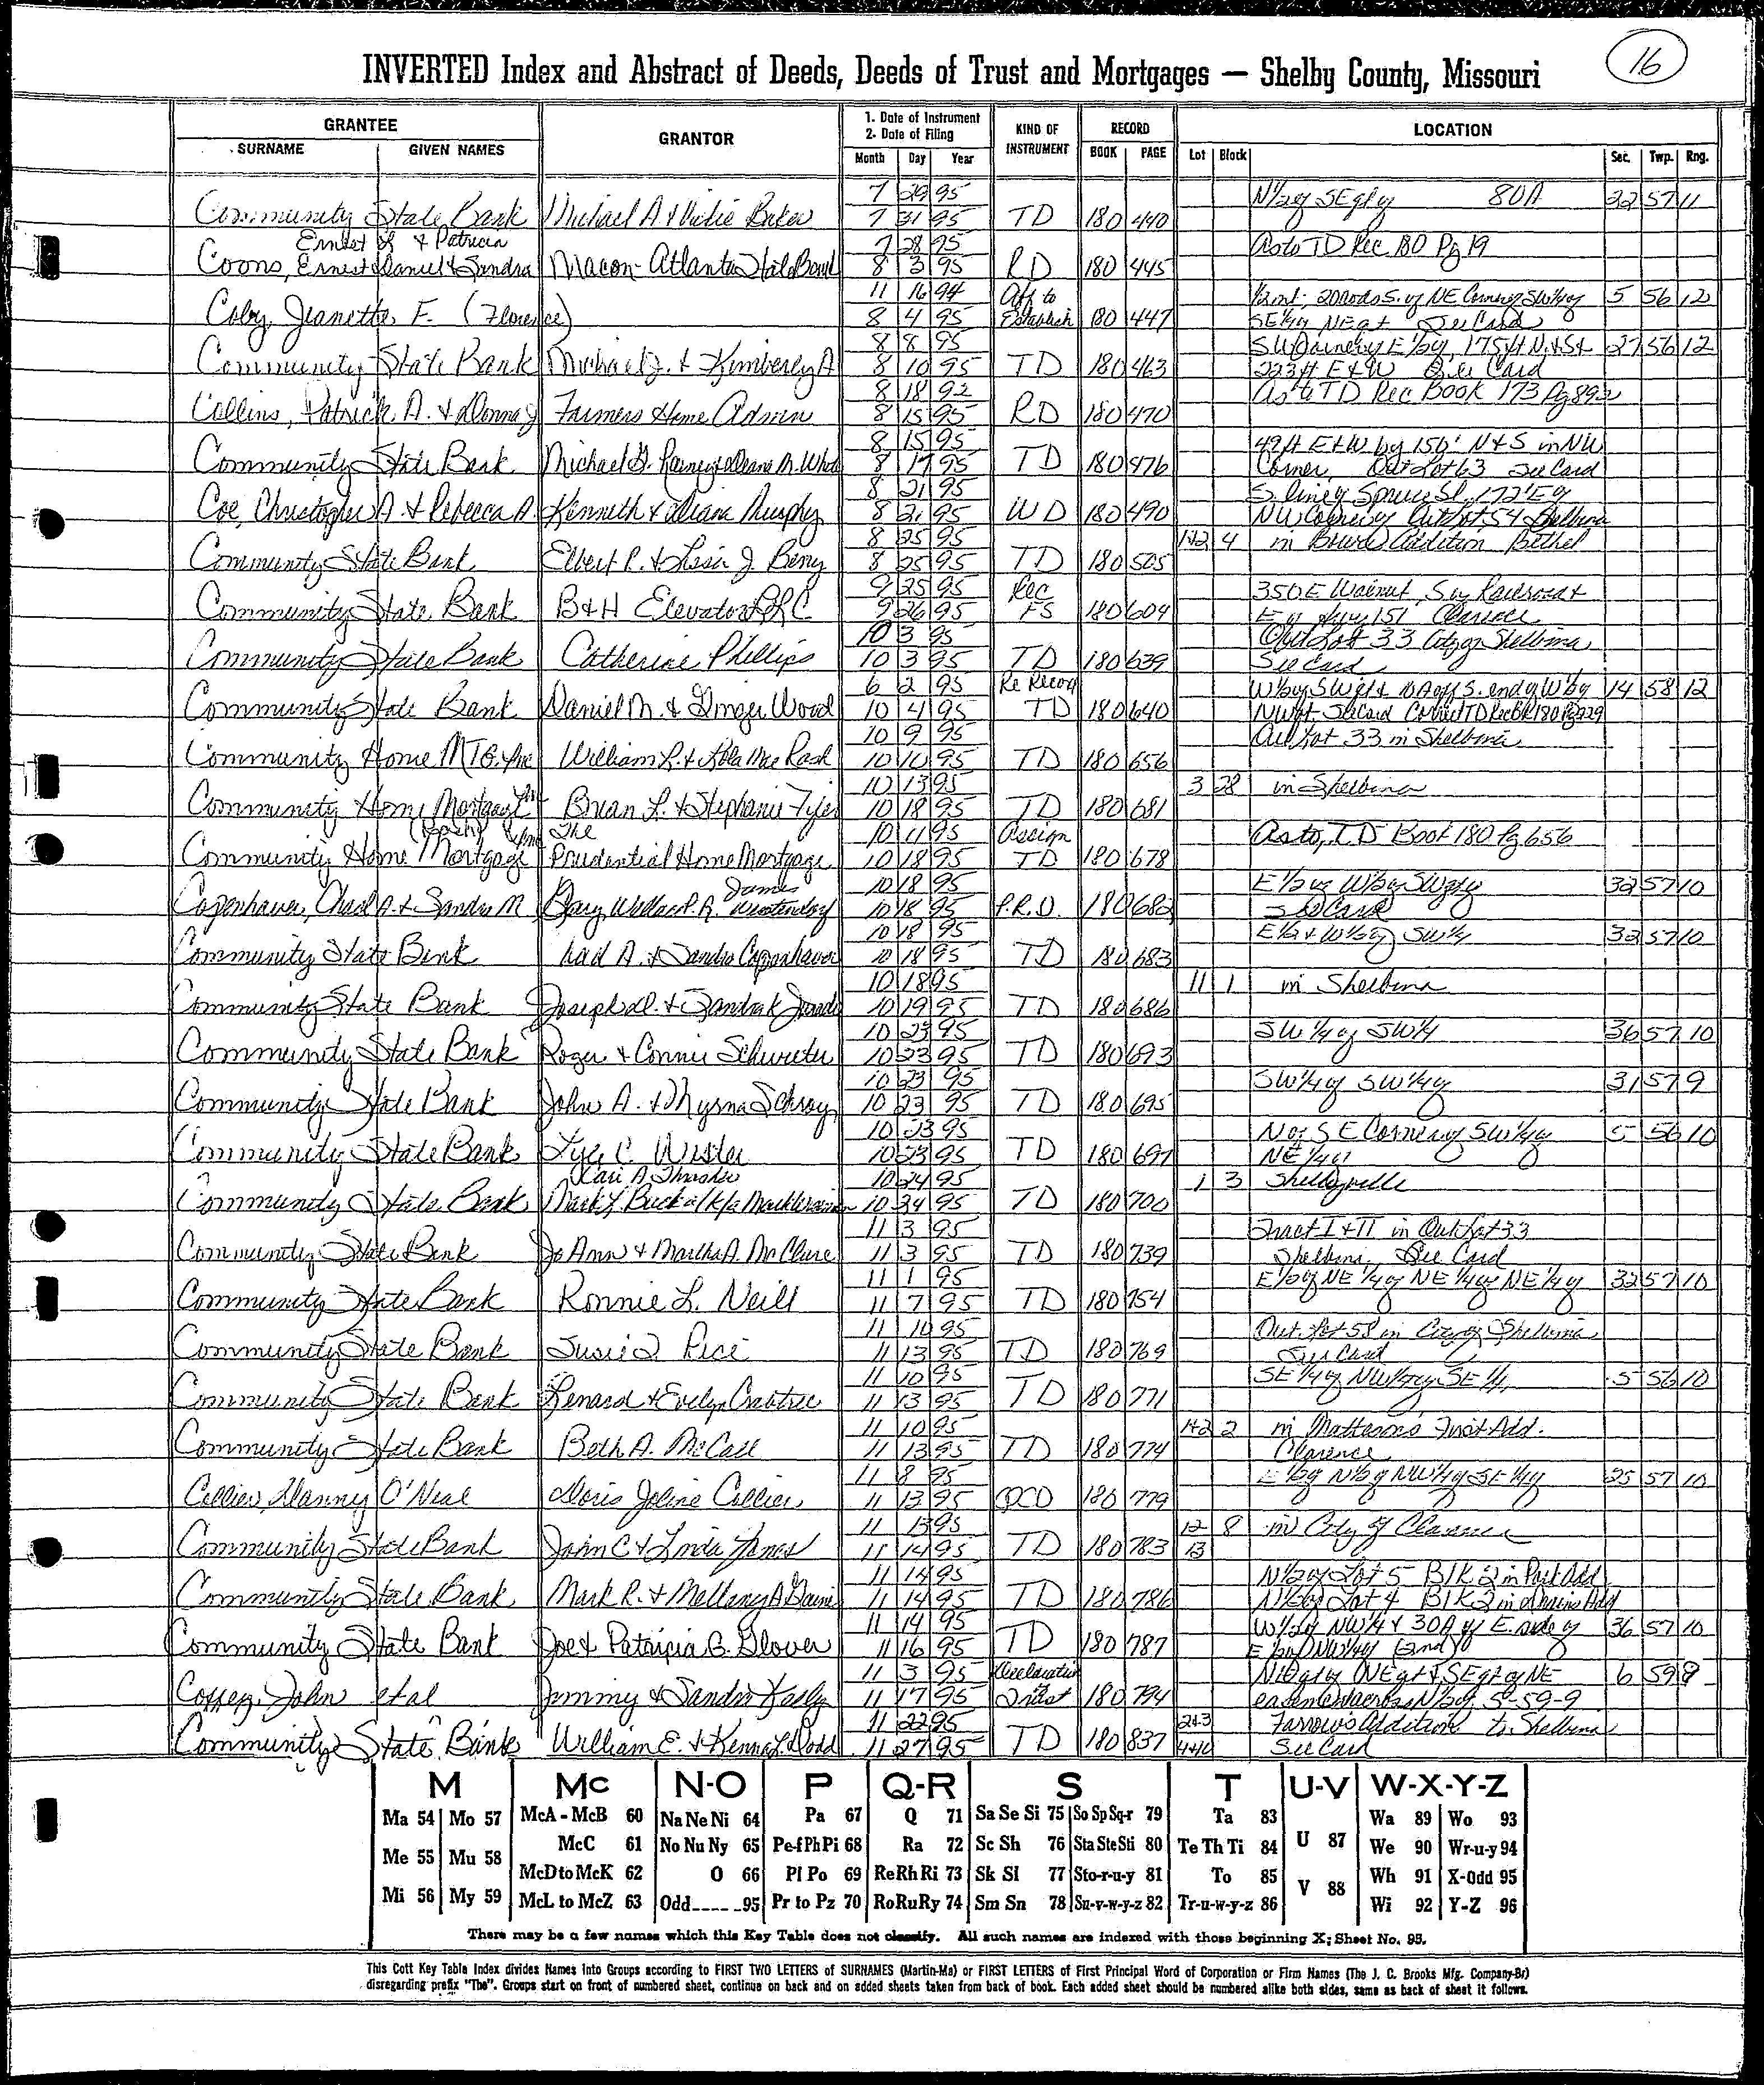 16
INVERTED Index and Abstract of Deeds, Deeds of Trust and Mortgages — Shelby County, Missouri
GRANTEE
SURNAME GIVEN NAMES
GRANTOR
1. Date of Instrument
2. Date of Filing
Month Day Year
KIND OF INSTRUMENT
RECORD
BOOK PAGE
LOCATION
Lot Block Sec. Twp. Rng.
7 29 95 N½ of SE qty 80A 32 57 11
Community State Bank Michael A & Vickie Baker 7 31 95 TD 180 440
Ernest L & Patricia 7 28 95 As to TD Rec 180 Pg 19
Coons, Ernest Daniel & Sandra Macon-Atlanta State Bank 8 3 95 RD 180 445
11 16 94 Aff to 20 Rods S. of NE Corner of SW¼ of 5 56 12
Jeanette F. (Florence) 8 4 95 Establish 180 447 SE¼ of NE qt See Card
8 8 95 SW Corner of E½ of, 175 ft N & S & 27 56 12
Community State Bank Michael J. & Kimberly A 8 10 95 TD 180 463 223 ft E & W See Card
8 18 92 As to TD Rec Book 173 Pg 892
Collins, Patrick A. & Donna J Farmers Home Admin 8 15 95 RD 180 470
8 15 95 49 ft E & W by 150' N & S in NW
Community State Bank 8 17 95 TD 180 476 Corner Out Lot 63 See Card
8 21 95 S. line of Spruce St. 172' E of
Coe, Christopher A. & Rebecca A. Kenneth & Diana Murphy 8 21 95 WD 180 490 NW Corner of Out Lot 54 Shelbina
8 25 95 1+2 4 in Addition Bethel
Community State Bank Elbert R. & J Berry 8 25 95 TD 180 505
9 25 95 Rec 350 E Walnut, S of Railroad &
Community State Bank B&H Elevator 9 26 95 FS 180 604 E of Hwy 151 Clarence
10 3 95 Out Lot 33 City of Shelbina
Community State Bank Catherine Phillips 10 3 95 TD 180 639 See Card
6 2 95 Re Record W½ of SW qt & S. end of W½ of 14 58 12
Community State Bank Daniel M. & Ginger Wood 10 4 95 TD 180 640 NW qt See Card
10 9 95 Out Lot 33 in Shelbina
Community Home MTG. Inc William R. & Mae Rash 10 10 95 TD 180 656
10 13 95 3 28 in Shelbina
Community Home Mortgage Brian L. & Stephanie Tyler 10 18 95 TD 180 681
The 10 11 95 Assign As to T.D. Book 180 Pg 656
Community Home Mortgage Prudential Home Mortgage 10 18 95 TD 180 678
James 10 18 95 E½ of W½ of SW qty 32 57 10
Copenhaver, Chad A. & Sandra M Gary Wallace P.R. 10 18 95 P.R.D. 180 682 See Card
10 18 95 E½ & W½ of SW¼ 32 57 10
Community State Bank Chad A. & Sandra Copenhaver 10 18 95 TD 180 683
10 18 95 11 1 in Shelbina
Community State Bank Joseph D. & Sandra K 10 19 95 TD 180 686
10 23 95 SW¼ of SW¼ 36 57 10
Community State Bank Roger & Connie Schwieter 10 23 95 TD 180 693
10 23 95 SW¼ of SW¼ of 31 57 9
Community State Bank John A. & Myrna Schray 10 23 95 TD 180 695
10 23 95 N of SE Corner of SW¼ of 5 56 10
Community State Bank Lyle C. 10 23 95 TD 180 697 NE¼ of
Kari A. Thrasher 10 24 95 1 3 Shelbyville
Community State Bank Mark L. Buck a/k/a Mark 10 24 95 TD 180 700
11 3 95 Tract I & II in Out Lot 33
Community State Bank Jo Ann & Martha A. McClure 11 3 95 TD 180 739 Shelbina See Card
11 1 95 E½ of NE¼ of NE¼ of NE¼ of 32 57 10
Community State Bank Ronnie L. Neill 11 7 95 TD 180 754
11 10 95 Out Lot 58 in City of Shelbina
Community State Bank Susie Q Rice 11 13 95 TD 180 769 See Card
11 10 95 SE¼ of NW¼ of SE¼ 5 56 10
Community State Bank Lenard & Evelyn Crabtree 11 13 95 TD 180 771
11 10 95 1+2 2 in Matteson's First Add.
Community State Bank Beth A. McCall 11 13 95 TD 180 774 Clarence
11 8 95 E½ of N½ of NW¼ of SE¼ of 25 57 10
Collier, Danny O'Neal Doris Joline Collier 11 13 95 QCD 180 779
11 13 95 12 8 in City of Clarence
Community State Bank John C & Linda Jones 11 14 95 TD 180 783 13
11 14 95 N½ of Lot 5 Blk 2 in Add
Community State Bank Mark R. & Mellany A 11 14 95 TD 180 786 N½ of Lot 4 Blk 2 in Add
11 14 95 W½ of NW¼ & 30A of E. side of 36 57 10
Community State Bank Joe & Patricia B. Glover 11 16 95 TD 180 787 E½ of NW¼ of
11 3 95 Declaration of NE qt of NE qt & SE qt of NE 6 59 8
John etal Jimmy & Sandra 11 17 95 Trust 180 794 easement across N½ of 5-59-9
11 22 95 2+3 Farrow's Addition to Shelbina
Community State Bank William E. & Kenna L. Dodd 11 27 95 TD 180 837 See Card
M Mc N-O P Q-R S T U-V W-X-Y-Z
Ma 54 Mo 57 McA - McB 60 Na Ne Ni 64 Pa 67 Q 71 Sa Se Si 75 So Sp Sq-r 79 Ta 83 Wa 89 Wo 93
McC 61 No Nu Ny 65 Pe-f Ph Pi 68 Ra 72 Sc Sh 76 Sta Ste Sti 80 Te Th Ti 84 U 87 We 90 Wr-u-y 94
Me 55 Mu 58 McD to McK 62 O 66 Pl Po 69 Re Rh Ri 73 Sk Sl 77 Sto-r-u-y 81 To 85 V 88 Wh 91 X-Odd 95
Mi 56 My 59 McL to McZ 63 Odd-----95 Pr to Pz 70 Ro Ru Ry 74 Sm Sn 78 Su-v-w-y-z 82 Tr-u-w-y-z 86 Wi 92 Y-Z 96
There may be a few names which this Key Table does not classify. All such names are indexed with those beginning X; Sheet No. 95.
This Cott Key Table Index divides Names into Groups according to FIRST TWO LETTERS of SURNAMES (Martin-Ma) or FIRST LETTERS of First Principal Word of Corporation or Firm Names (The J. C. Brooks Mfg. Company-Br)
disregarding prefix "The". Groups start on front of numbered sheet, continue on back and on added sheets taken from back of book. Each added sheet should be numbered alike both sides, same as back of sheet it follows.